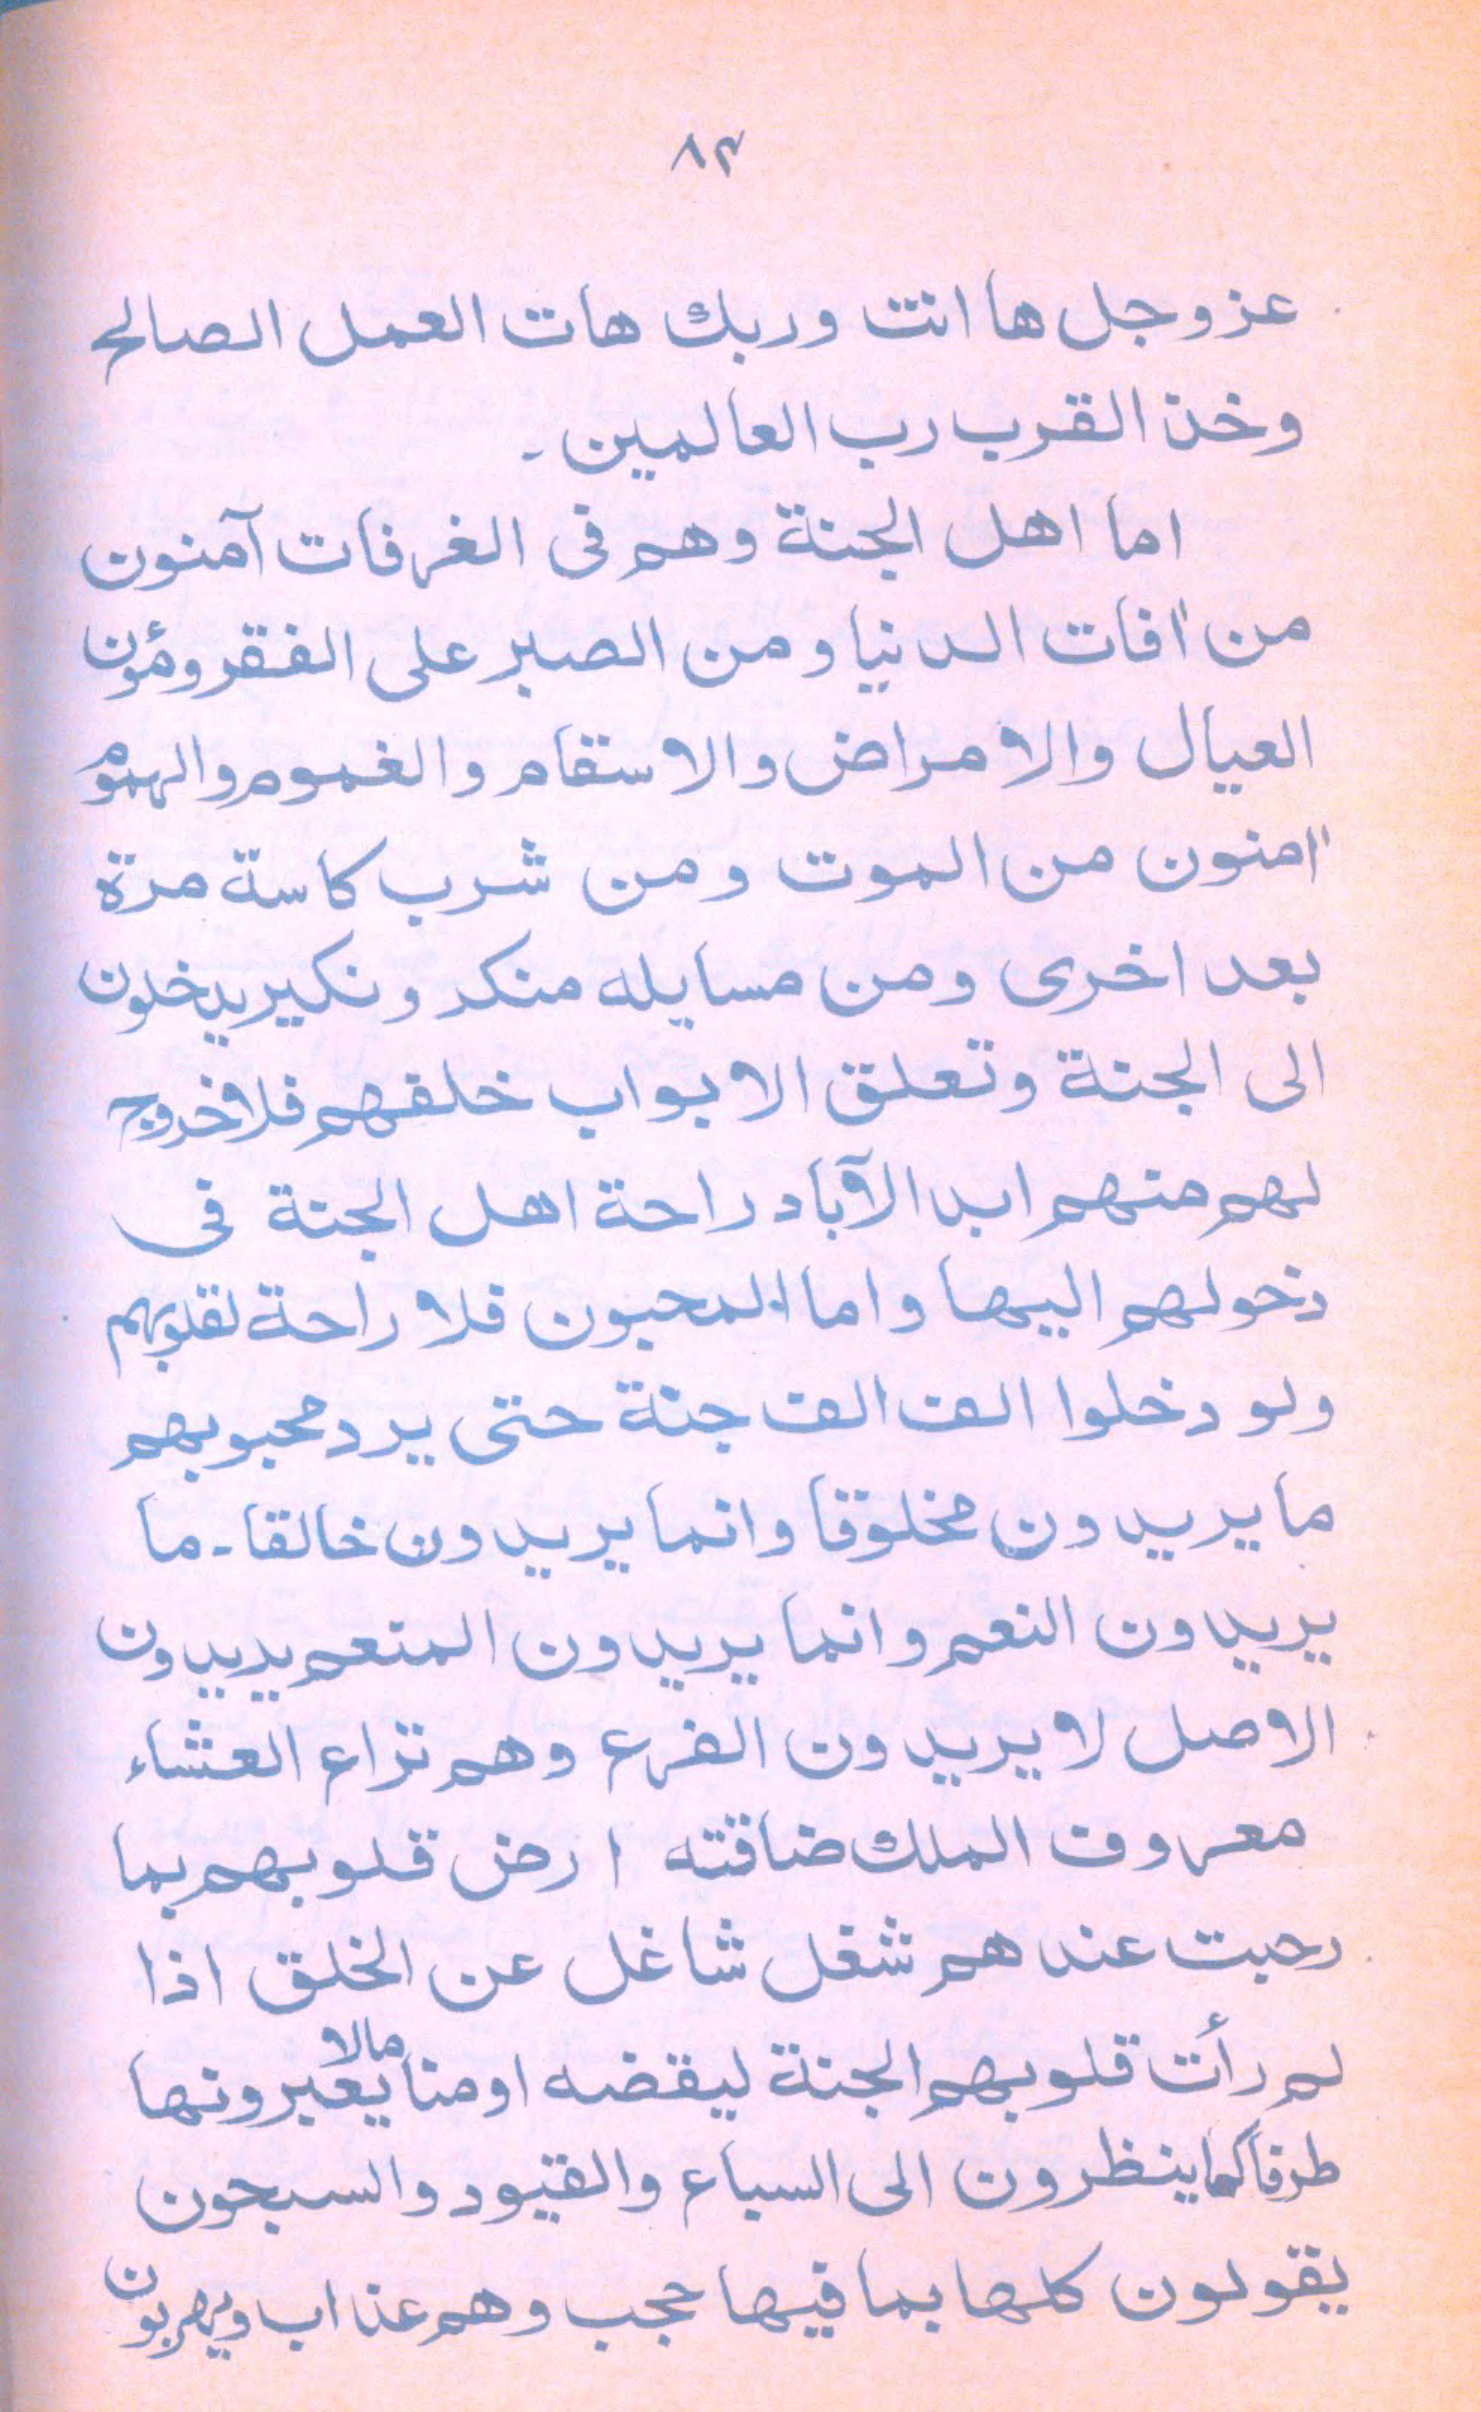 ٨٣
عز وجل ها انت وربك هات العمل الصالح
وخذ القرب رب العالمين ۔
اما اهل الجنة وهم فى الغرفات آمنون
من اٰفات الدنيا ومن الصبر على الفقر ومؤن
العيال والامراض والاسقام والغموم والهموم
اٰمنون من الموت ومن شرب كاسة مرة
بعد اخرى ومن مسايله منكر ونكير يدخلون
الى الجنة وتعلق الابواب خلفهم فلا خروج
لهم منهم ابد الآباد راحة اهل الجنة فى
دخولهم اليها واما المحبون فلا راحة لقلوبهم
ولو دخلوا الف الف جنة حتى يرد محبوبهم
ما يريدون مخلوقا وانما يريدون خالقا۔ ما
يريدون النعم وانما يريدون المنعم يريدون
الاصل لا يريدون الفرع وهم نزاع العشاء
معروف الملك ضاقته ارض قلوبهم بما
رحبت عندهم شغل شاغل عن الخلق اذا
لم رأت قلوبهم الجنة ليقضه او منا مالا يعبرونها
طرفا كما ينظرون الى السباع والقيود والسجون
يقولون كلها بما فيها حجب وهم عذاب ويهربون